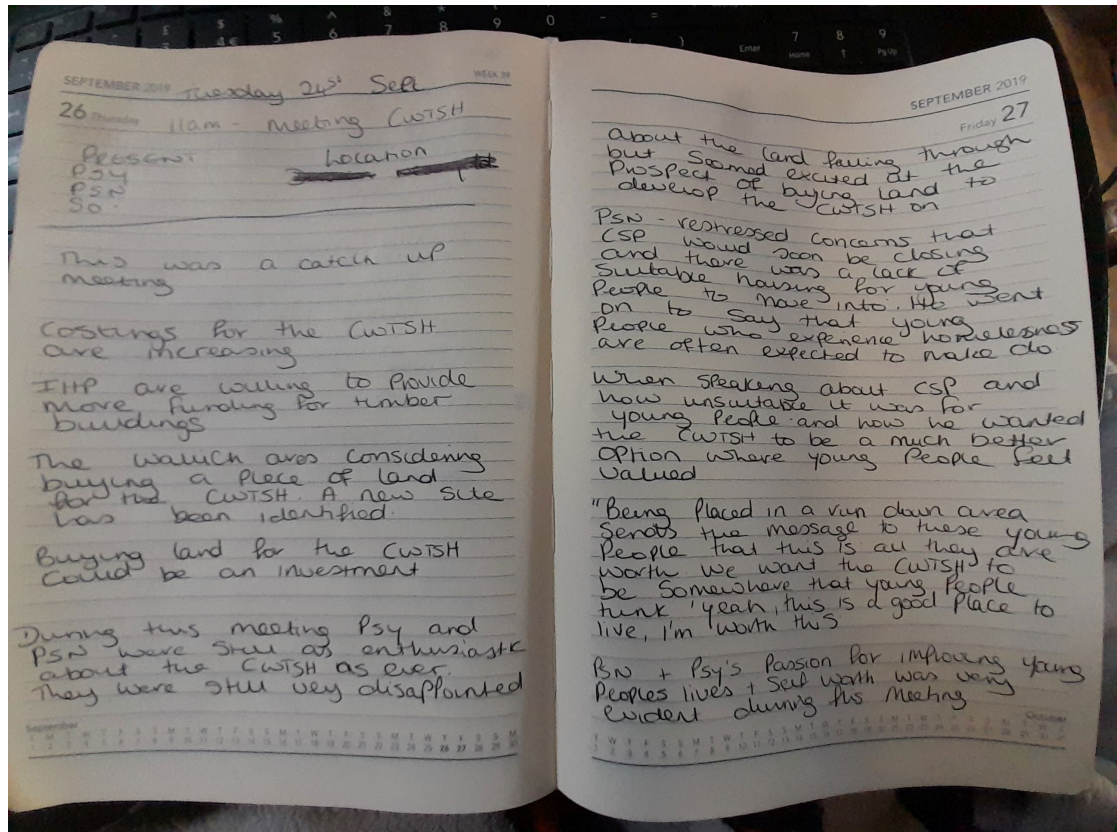 SEPTEMBER 2019 Tuesday 24st Sept WEEK 39
26 Thursday 11am - Meeting CWTSH
PRESENT Location
PSY
PSN
SO.
This was a catch up
meeting
Costings for the CWTSH
are increasing
IHP are willing to Provide
more funding for timber
buildings
The Wallich ares considering
buying a Piece of land
for the CWTSH. A new site
has been identified.
Buying land for the CWTSH
Could be an investment
During this meeting Psy and
PSN were still as enthusiastic
about the CWTSH as ever.
They were still very disappointed
September
SEPTEMBER 2019
Friday 27
about the land falling through
but Seemed excited at the
Prospect of buying land to
develop the CWTSH on
PSN - restressed concerns that
CSP would soon be closing
and there was a lack of
Suitable housing for young
People to move into. He went
on to say that young
People who experience homelessness
are often expected to make do
When Speaking about CSP and
how unsuitable it was for
young People and how he wanted
the CWTSH to be a much better
option where young People feel
Valued
"Being Placed in a run down area
Sends the message to these young
People that this is all they are
worth. We want the CWTSH to
be Somewhere that young People
think 'yeah, this is a good Place to
live, I'm worth this'
PSN + Psy's Passion for improving young
Peoples lives + Self worth was very
evident during this Meeting
October